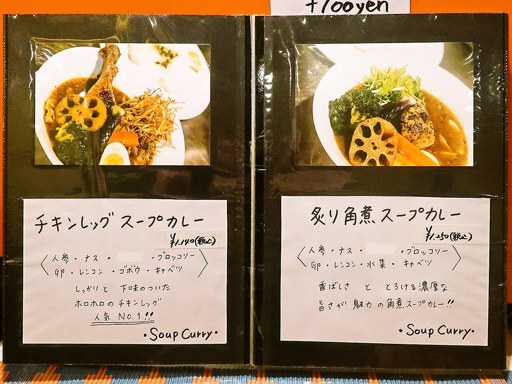 +100yen
チキンレッグ スープカレー
¥1,140(税込)
人参・ナス・ ・ブロッコリー
卵・レンコン・ゴボウ・キャベツ
しっかりと 下味のついた
ホロホロのチキンレッグ
人気 NO.1!!
・Soup Curry・
炙り角煮スープカレー
¥1,250(税込)
人参・ナス・ ・ブロッコリー
卵・レンコン・水菜・キャベツ
香ばしさ と とろける濃厚な
旨さが 魅力 の角煮スープカレー!!
・Soup Curry・